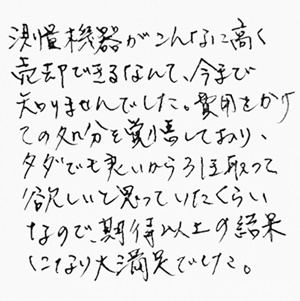 測量機器がこんなに高く
売却できるなんて、今まで
知りませんでした。費用をかけ
ての処分を覚悟しており、
タダでも良いから引き取って
欲しいと思っていたくらい
なので、期待以上の結果
になり大満足でした。